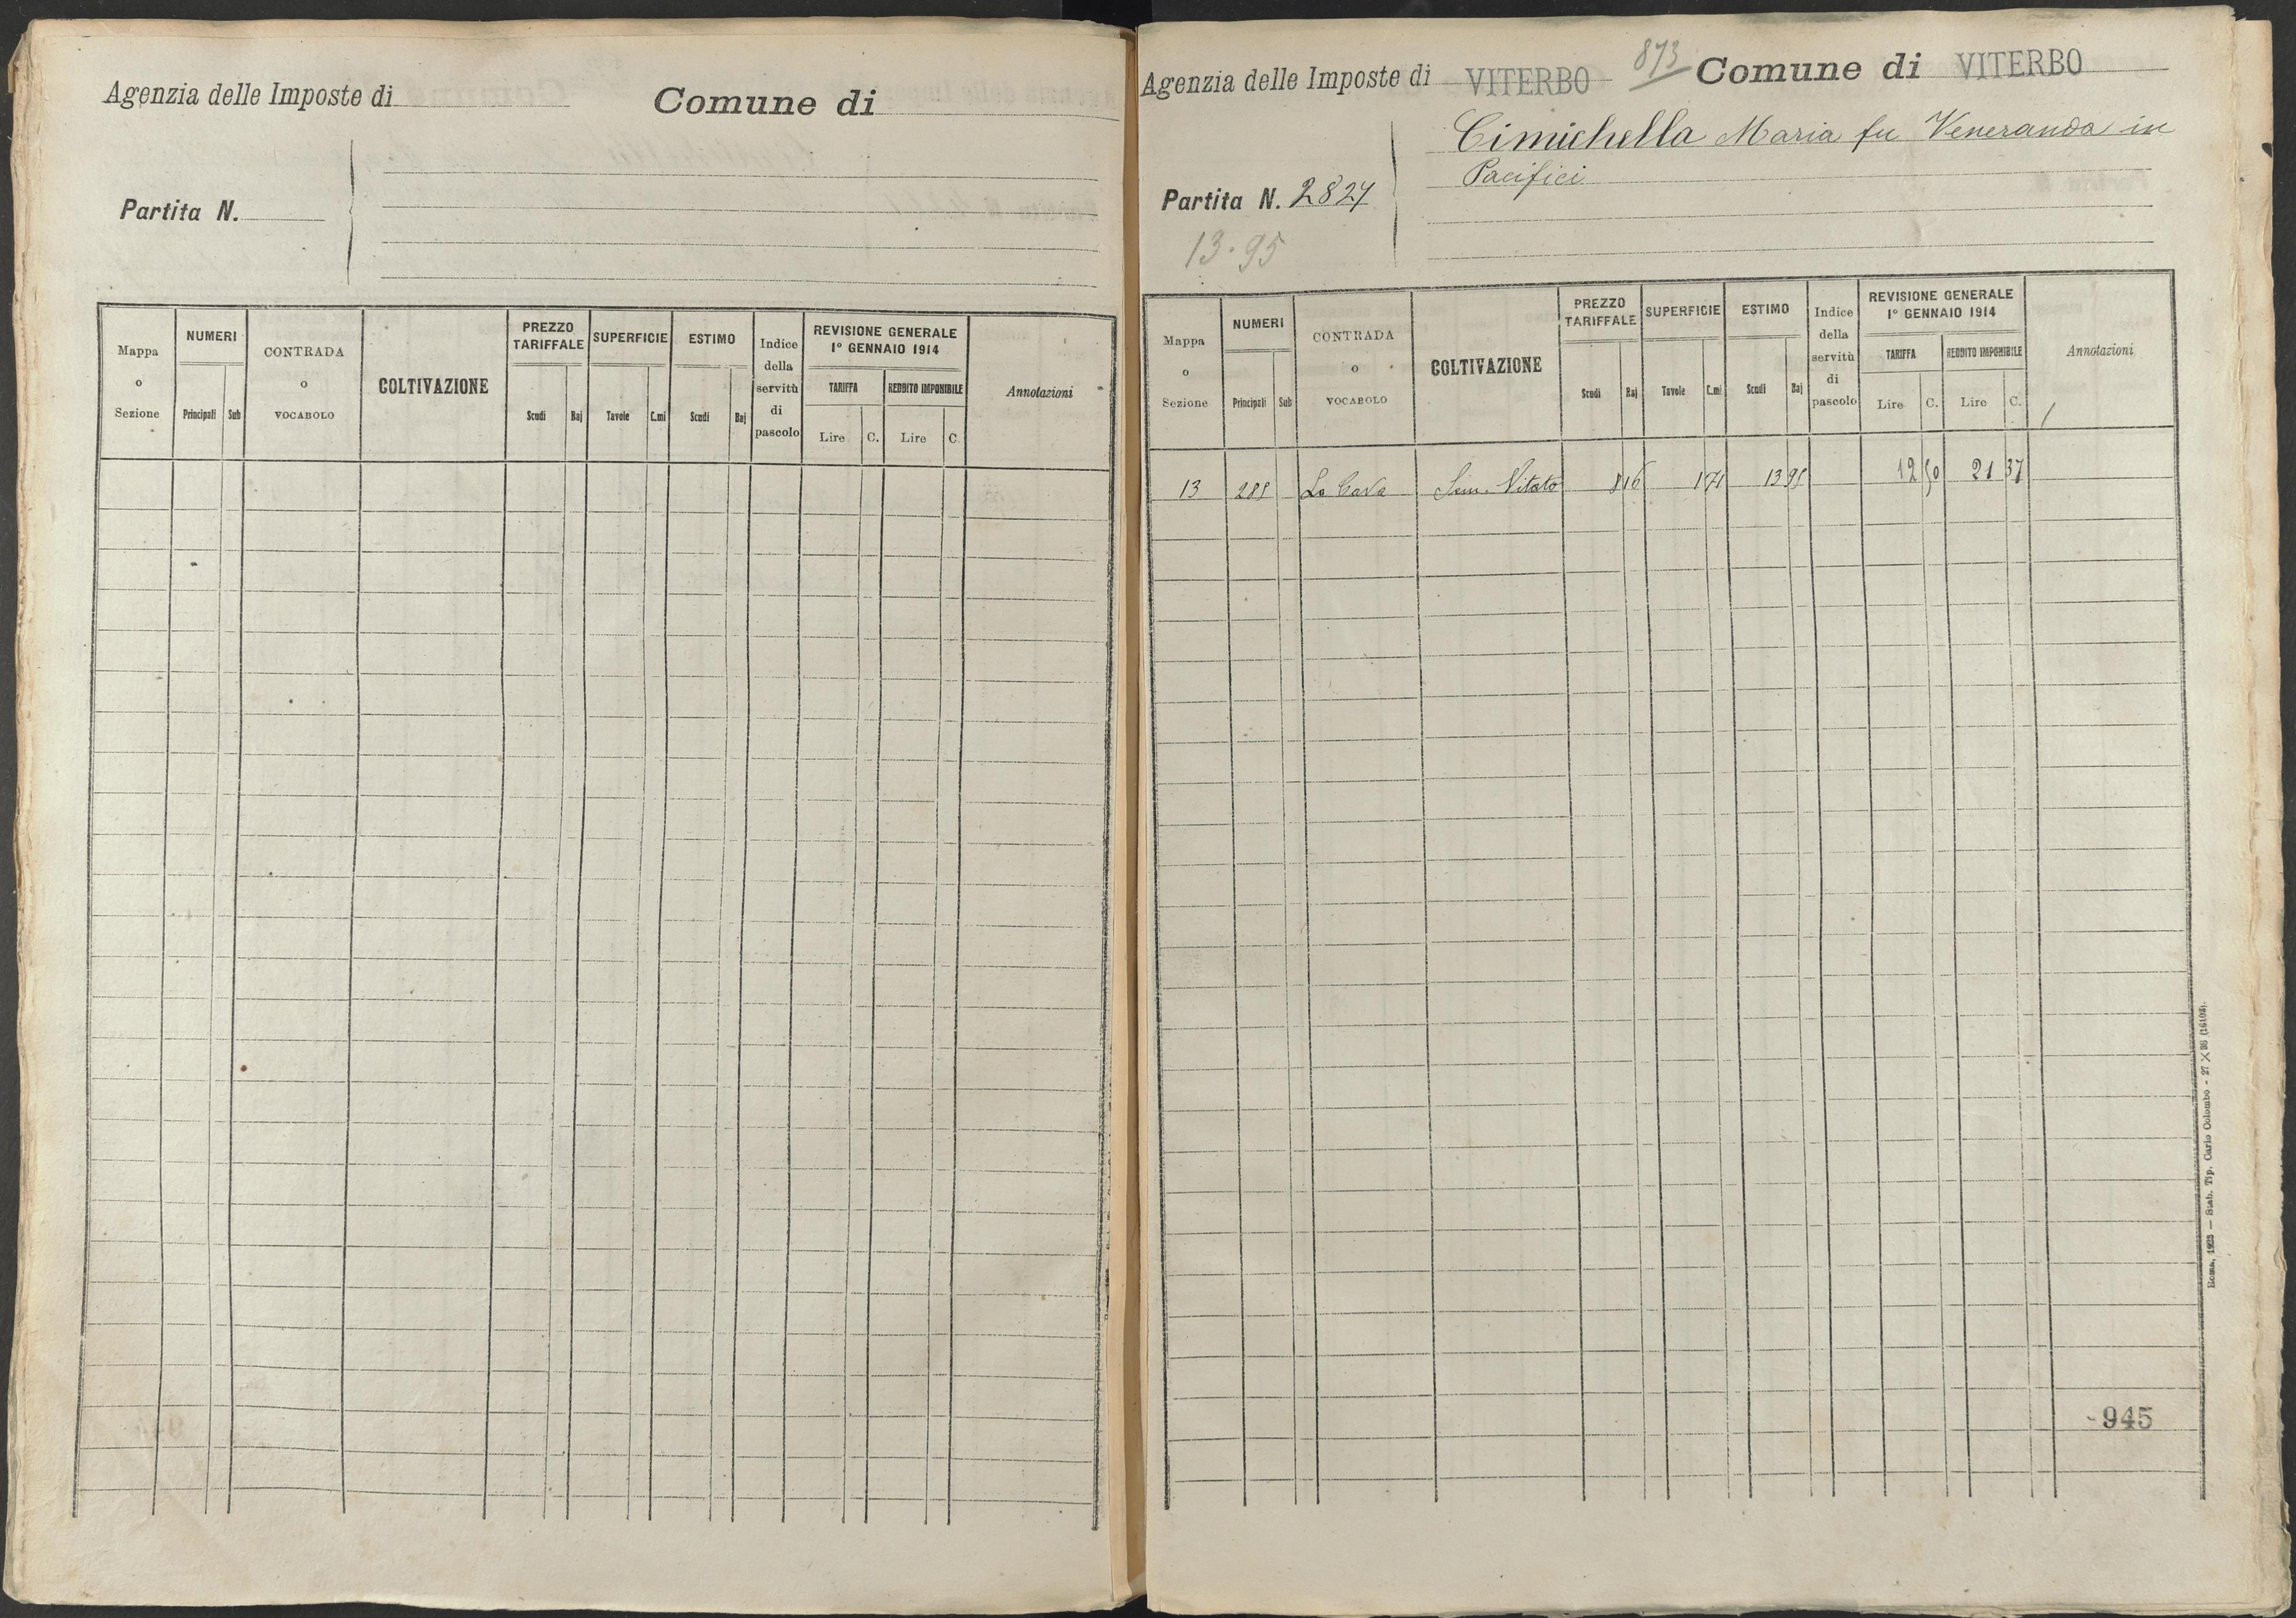 Agenzia delle Imposte di
Comune di
Partita N.
Mappa o Sezione
NUMERI
Principali Sub
CONTRADA o VOCABOLO
COLTIVAZIONE
PREZZO TARIFFALE
Scudi Baj
SUPERFICIE
Tavole C.mi
ESTIMO
Scudi Baj
Indice della servitù di pascolo
REVISIONE GENERALE
1° GENNAIO 1914
TARIFFA REDDITO IMPONIBILE
Lire C. Lire C.
Annotazioni
873
Agenzia delle Imposte di VITERBO Comune di VITERBO
Cimichella Maria fu Veneranda in
Pacifici
Partita N. 2827
13.95
Mappa o Sezione
NUMERI
Principali Sub
CONTRADA o VOCABOLO
COLTIVAZIONE
PREZZO TARIFFALE
Scudi Baj
SUPERFICIE
Tavole C.mi
ESTIMO
Scudi Baj
Indice della servitù di pascolo
REVISIONE GENERALE
1° GENNAIO 1914
TARIFFA REDDITO IMPONIBILE
Lire C. Lire C.
Annotazioni
13 La Cava Sem. Vitato 8 16 1 71 13 95 12 50 21 37
945
Roma, 1925 — Stab. Tip. Carlo Colombo